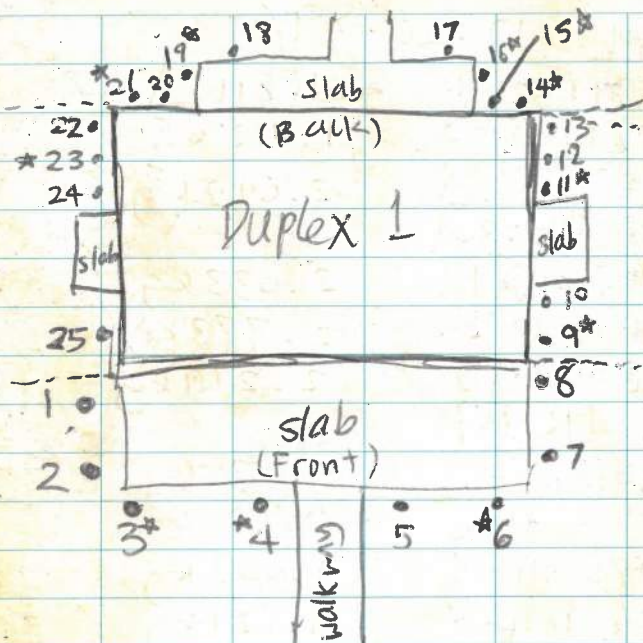 18
17
15☆
19*
16☆
*21
20
slab
14*
22
(Back)
13
*23
12
24
11*
Duplex 1
slab
slab
10
25
9*
8
1
slab
2
(Front)
7
3*
*4
5
☆6
walkway